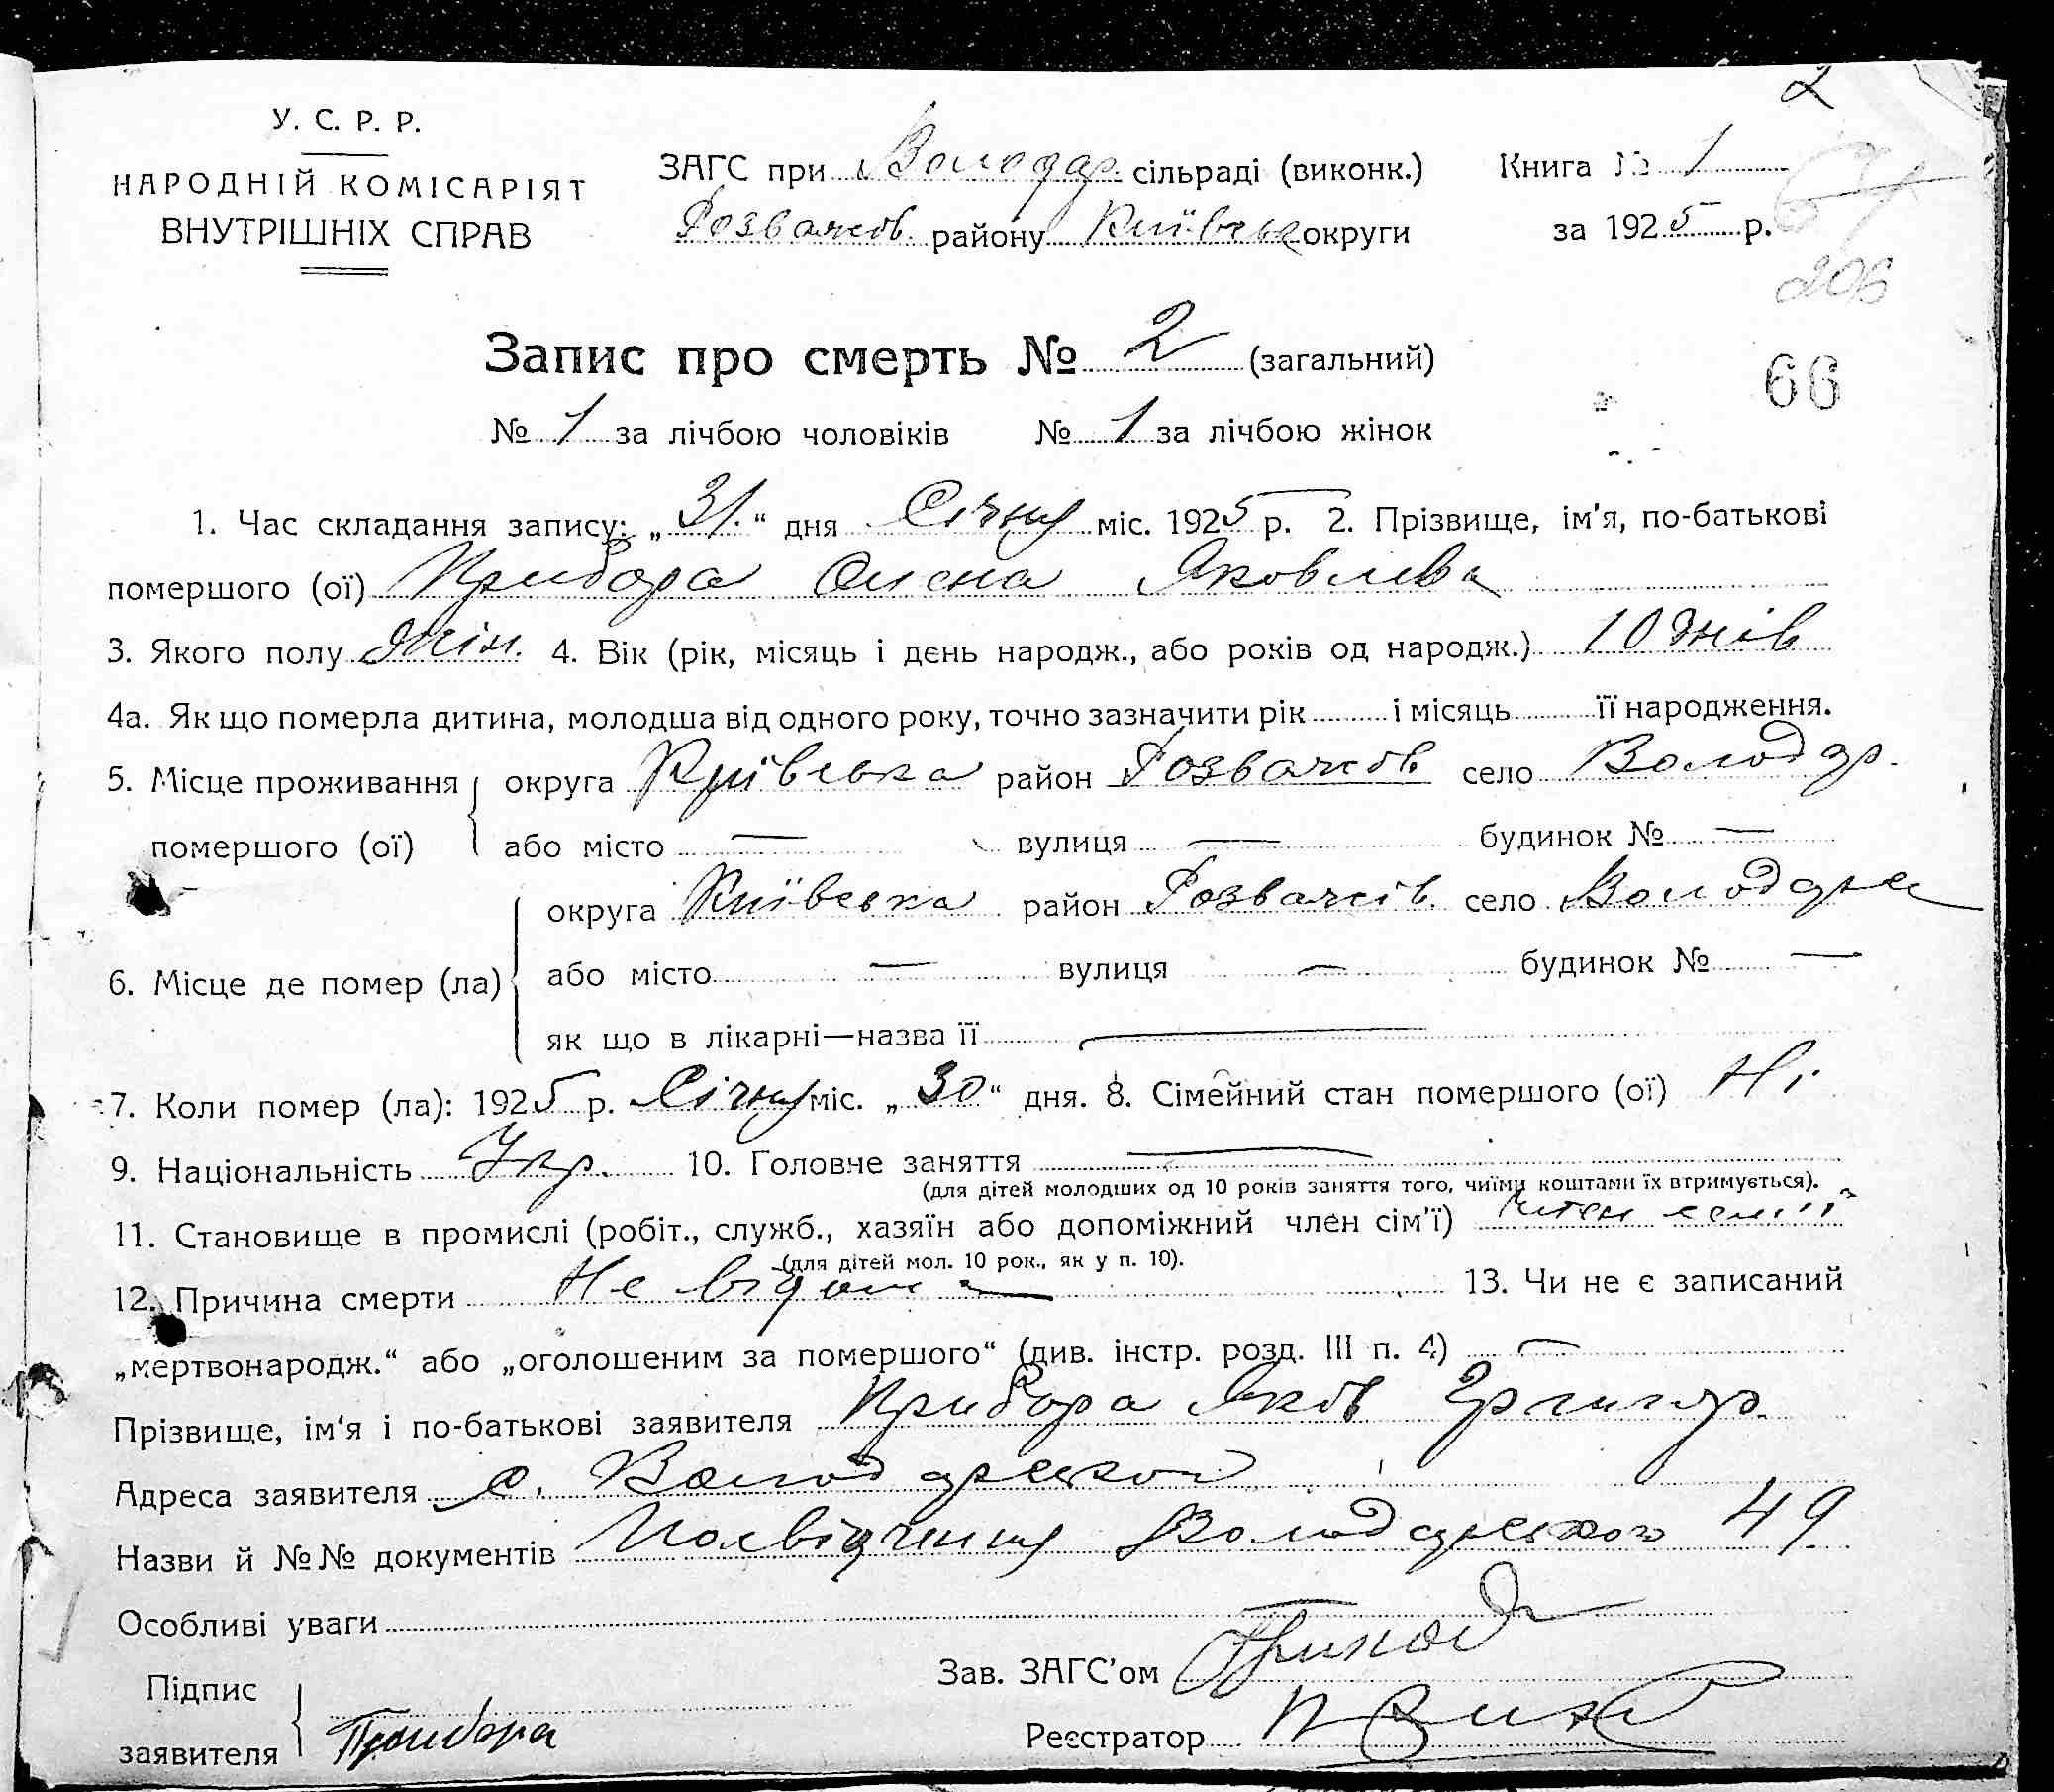 2
У. С. Р. Р.
НАРОДНІЙ КОМІСАРІЯТ
ВНУТРІШНІХ СПРАВ
ЗАГС при Володар. сільраді (виконк.)
Розважів. району Київськ округи
Книга № 1
за 1925 р.
206
66
Запис про смерть № 2 (загальний)
№ 1 за лічбою чоловіків № 1 за лічбою жінок
1. Час складання запису: „31.“ дня Січня міс. 1925 р. 2. Прізвище, ім'я, по-батькові
помершого (ої) Прибора Олена Яковлева
3. Якого полу жін. 4. Вік (рік, місяць і день народж., або років од народж.) 10 днів
4а. Як що померла дитина, молодша від одного року, точно зазначити рік і місяць її народження.
5. Місце проживання помершого (ої) округа Київська район Розважів село Володар.
або місто — вулиця — будинок № —
6. Місце де помер (ла) округа Київська район Розважів. село Володарка
або місто — вулиця — будинок № —
як що в лікарні—назва її —
7. Коли помер (ла): 1925 р. Січня міс. „30“ дня. 8. Сімейний стан помершого (ої) Ні
9. Національність Укр. 10. Головне заняття —
(для дітей молодших од 10 років заняття того, чиїми коштами їх втримується).
11. Становище в промислі (робіт., служб., хазяїн або допоміжний член сім'ї) член семії
(для дітей мол. 10 рок., як у п. 10).
12. Причина смерти Не відома 13. Чи не є записаний
„мертвонародж.“ або „оголошеним за помершого“ (див. інстр. розд. III п. 4) —
Прізвище, ім'я і по-батькові заявителя Прибора Яків Григор.
Адреса заявителя с.
Назви й №№ документів Посвідчення 49
Особливі уваги
Підпис заявителя Прибора
Зав. ЗАГС'ом
Реєстратор